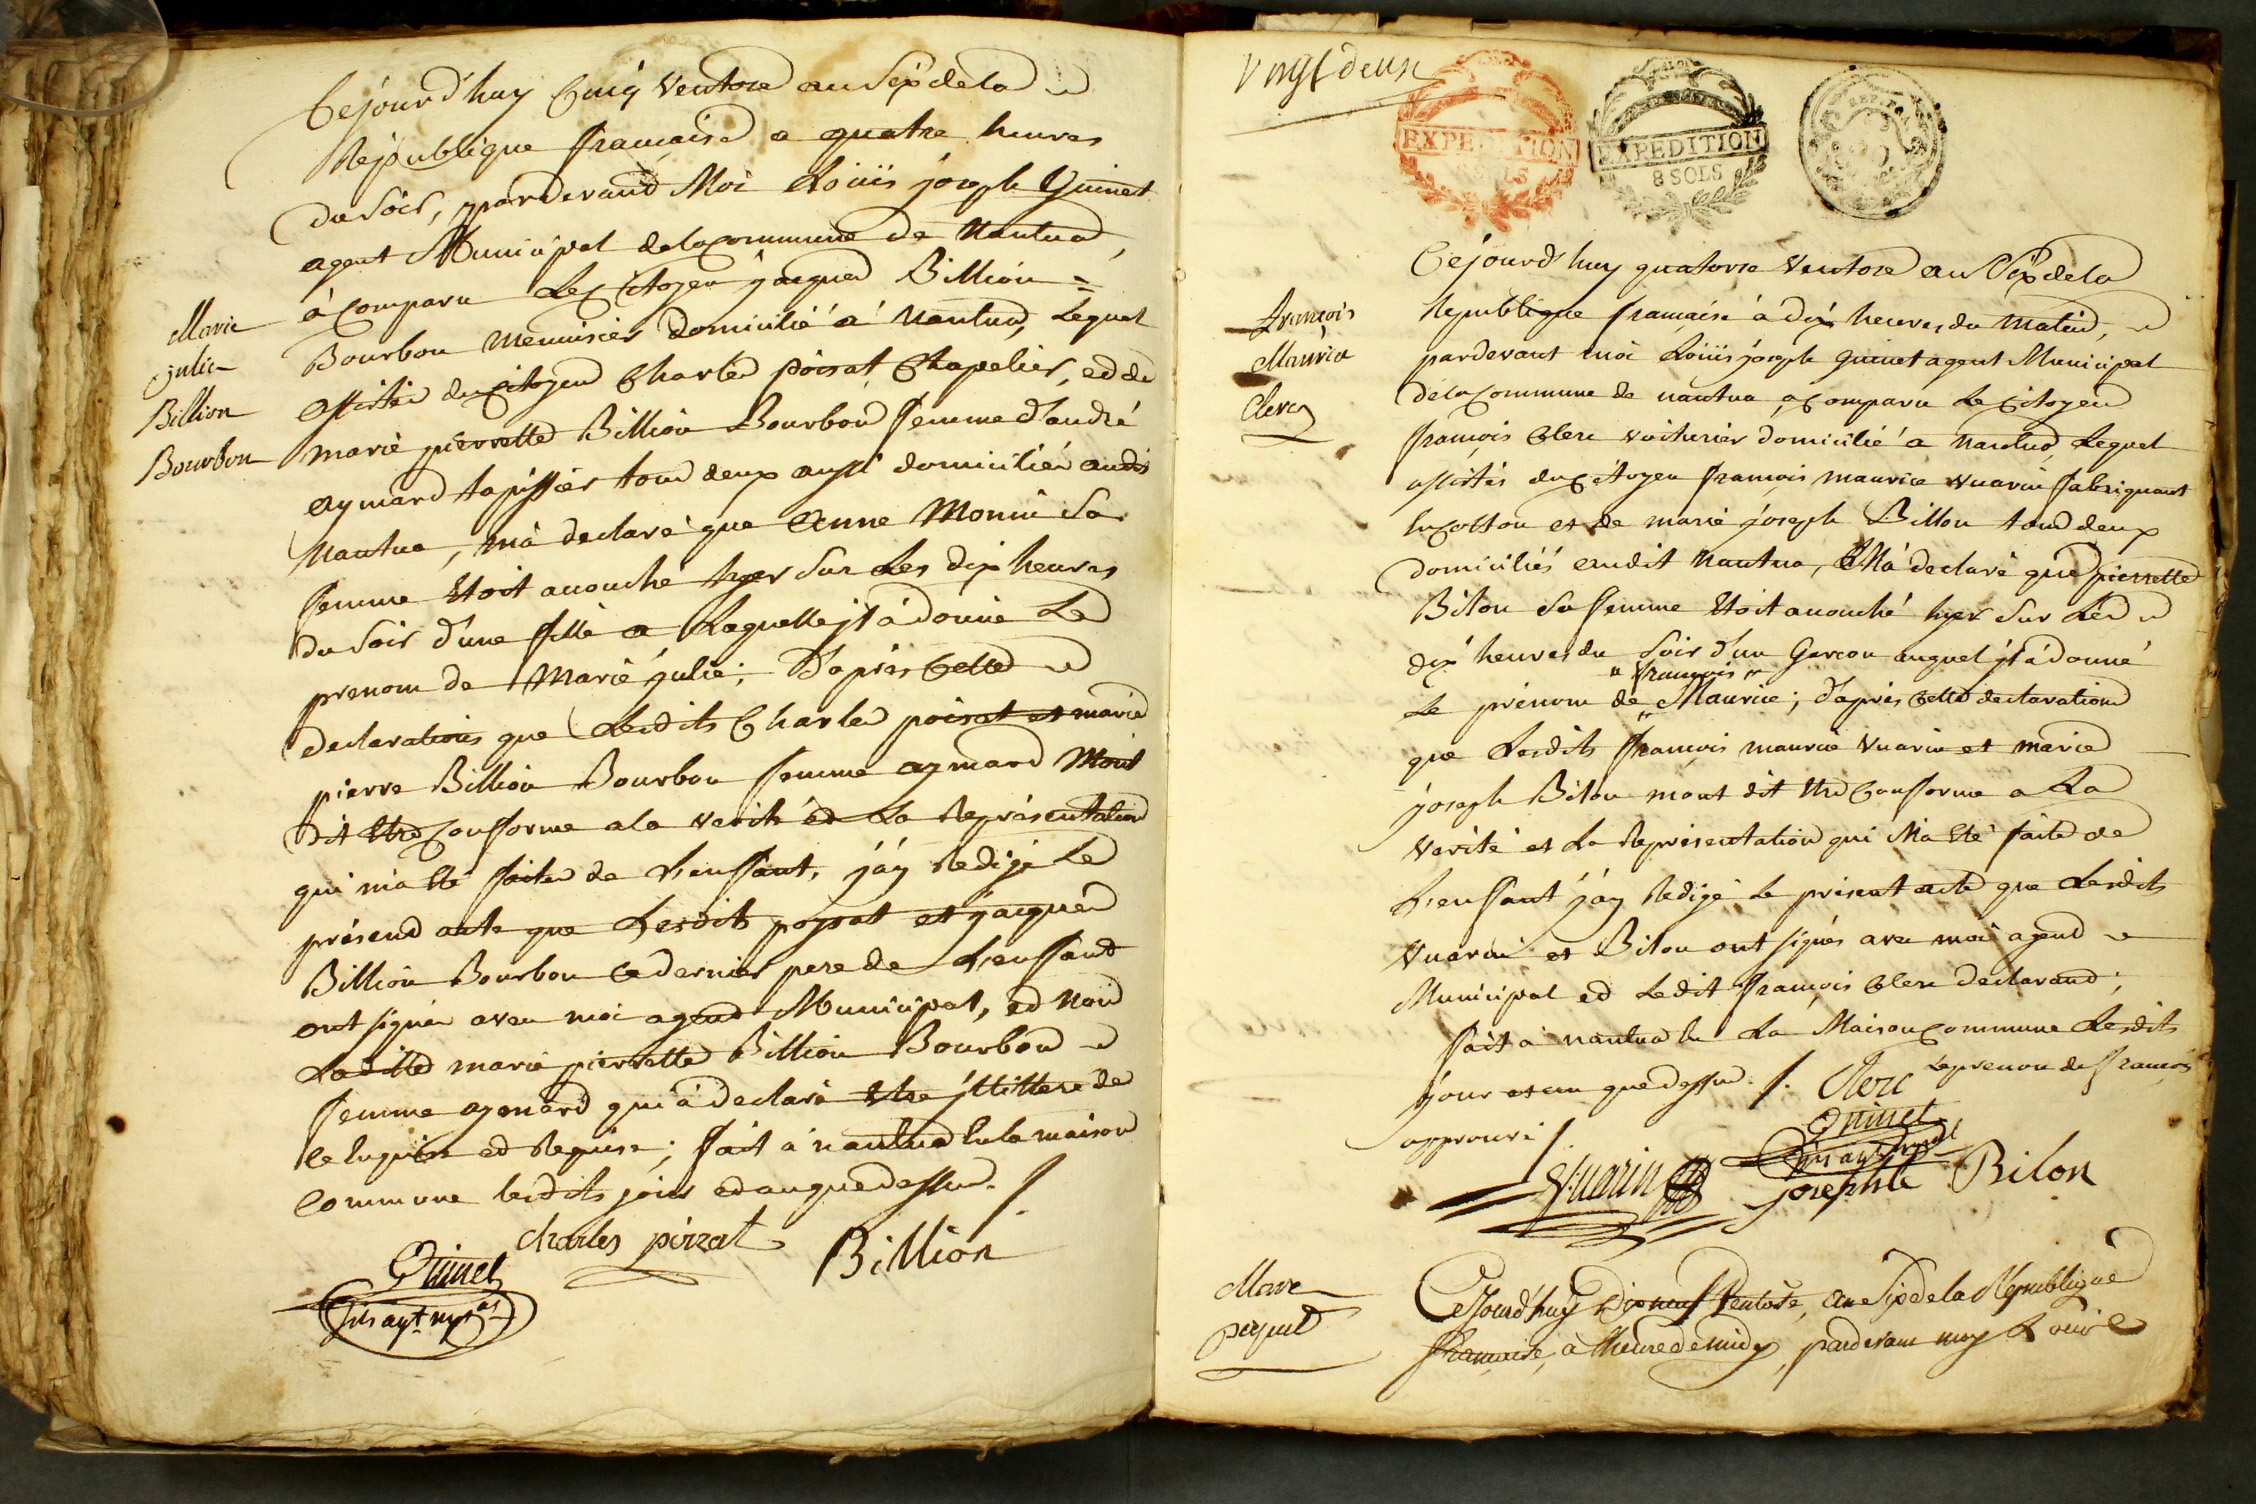 Cejourd'huy Cinq Ventose an Six de la
République française a quatre heures
du Soir, pardevant Moi Louis joseph Guinet
agent Municipal de la Commune de Nantua,
à Comparu Le Citoyen jacques Billion =
Bourbon Menuisier domicilié à Nantua, Lequel
assisté du Citoyen Charles poisat Chapelier, et de
marie pierrette Billion Bourbon femme d'andré
aymard tapissier tous deux aussi domiciliés audit
Nantua, m'à declaré que Anne Monin Sa
femme Etoit accouché hyer Sur Les dix heures
du Soir d'une fille a Laquelle jl à donné Le
prenom de Marie julie; D'après Cette
declaration que Lesdits Charles poisat et marie
pierre Billion Bourbon femme aymard Mont
Dit Etre Conforme a la verité et La Représentation
qui m'a Eté faite de L'enffant, j'ay Redigé Le
présend acte que Lesdits poysat et jacques
Billion Bourbon Ce dernier pere de L'enffant
ont signés avec moi agend Municipal, et Non
Laditte marie pierrette Billion Bourbon
femme aymard qui à declaré Etre jllittere de
ce Enquise et Requise; fait à nantua En la maison
Commune lesdits jour et an que dessus. /.
charles poizat
Billion
Guinet
agt mpal
Marie
julie
Billion
Bourbon
Vingt deux
EXPEDITION
8 SOLS
EXPEDITION
8 SOLS
REP. FRA
Cejourd'huy quatorze Ventose an Six de la
Republique française à dix heures du Matin,
pardevant moi Louis joseph Guinet agent Municipal
de la Commune de nantua, a Comparu Le Citoyen
françois Clerc voiturier domicilié a Nantua, Lequel
assistés du Citoyen françois maurice Vuarin fabriquant
En Cotton et de marie joseph Billon tous deux
domiciliés audit Nantua, M'à declaré que pierrette
Bilon Sa femme Etoit accouché hyer Sur Les
dix heures du Soir d'un Garcon auquel jl à donné
" françois "
Le prénom de Maurice; d'après Cette declaration
que Lesdits françois maurice Vuarin et marie
joseph Bilon mont dit Etre Conforme a La
verité et La Représentation qui M'a Eté faite de
L'enffant j'ay Redigé Le présent acte que Lesdits
Vuarin et Bilon ont signés avec moi agend
Municipal et Ledit françois Clerc declarand;
fait à nantua En La Maison Commune Lesdits
jour et an que dessus. /. Clerc Le prenom de françois
approuvé /.
Guinet
Vuarin
josephte Bilon
François
Maurice
Clerc
Marie
Cejourd'huy Dix neuf Ventose, an Six de la République
française, à l'heure de midy, pardevant moy Louis